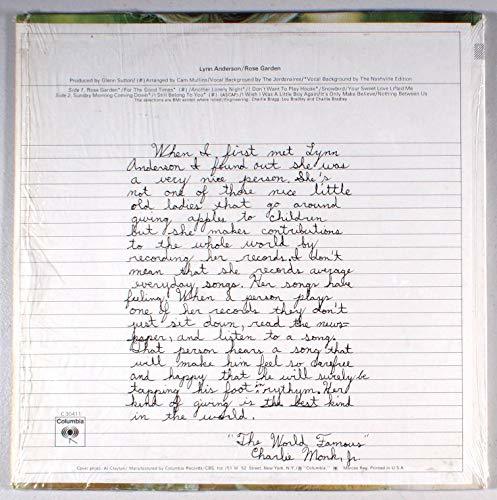 Lynn Anderson/Rose Garden
Produced by Glenn Sutton/ (#) Arranged by Cam Mullins/Vocal Background by The Jordanaires/*Vocal Background by The Nashville Edition
Side 1. Rose Garden*/For The Good Times* (#) /Another Lonely Night*/I Don't Want To Play House*/Snowbird/Your Sweet Love Lifted Me
Side 2. Sunday Morning Coming Down*/I Still Belong To You* (#) (ASCAP)/I Wish I Was A Little Boy Again/It's Only Make Believe/Nothing Between Us
The selections are BMI except where noted/Engineering: Charlie Bragg, Lou Bradley and Charlie Bradley
When I first met Lynn
Anderson I found out she was
a very nice person. She's
not one of those nice little
old ladies that go around
giving apples to children
but she makes contributions
to the whole world by
recording her records. I don't
mean that she records average
everyday songs. Her songs have
feeling! When a person plays
one of her records they don't
just sit down, read the news-
paper, and listen to a song.
That person hears a song that
will make him feel so carefree
and happy that he will surely be
tapping his foot in rythym. Her
kind of giving is the best kind
in the world.
"The World Famous"
Charlie Monk, Jr.
C 30411
Columbia
Cover photo: Al Clayton/ Manufactured by Columbia Records/CBS, Inc./51 W. 52 Street, New York, N.Y./ ® "Columbia", Marcas Reg. Printed in U.S.A.